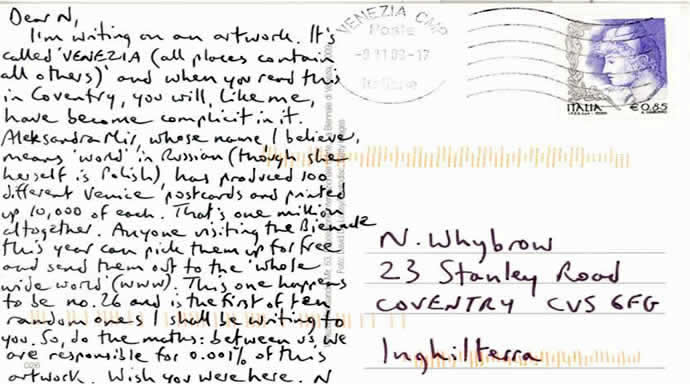 Dear N,
I'm writing on an artwork. It's
called 'VENEZIA (all places contain
all others)' and when you read this
in Coventry, you will, like me,
have become complicit in it.
Aleksandra Mir, whose name, I believe,
means 'world' in Russian (though she
herself is Polish), has produced 100
different Venice postcards and printed
up 10,000 of each. That's one million
altogether. Anyone visiting the Biennale
this year can pick them up for free
and send them out to the 'whole
wide world' (www). This one happens
to be no. 26 and is the first of ten
random ones I shall be writing to
you. So, do the maths: between us, we
are responsible for 0.001% of this
artwork. Wish you were here. N
026
VENEZIA CMP
Poste
Italiane
ITALIA €0,85
N. Whybrow
23 Stanley Road
COVENTRY CV5 6FG
Inghilterra